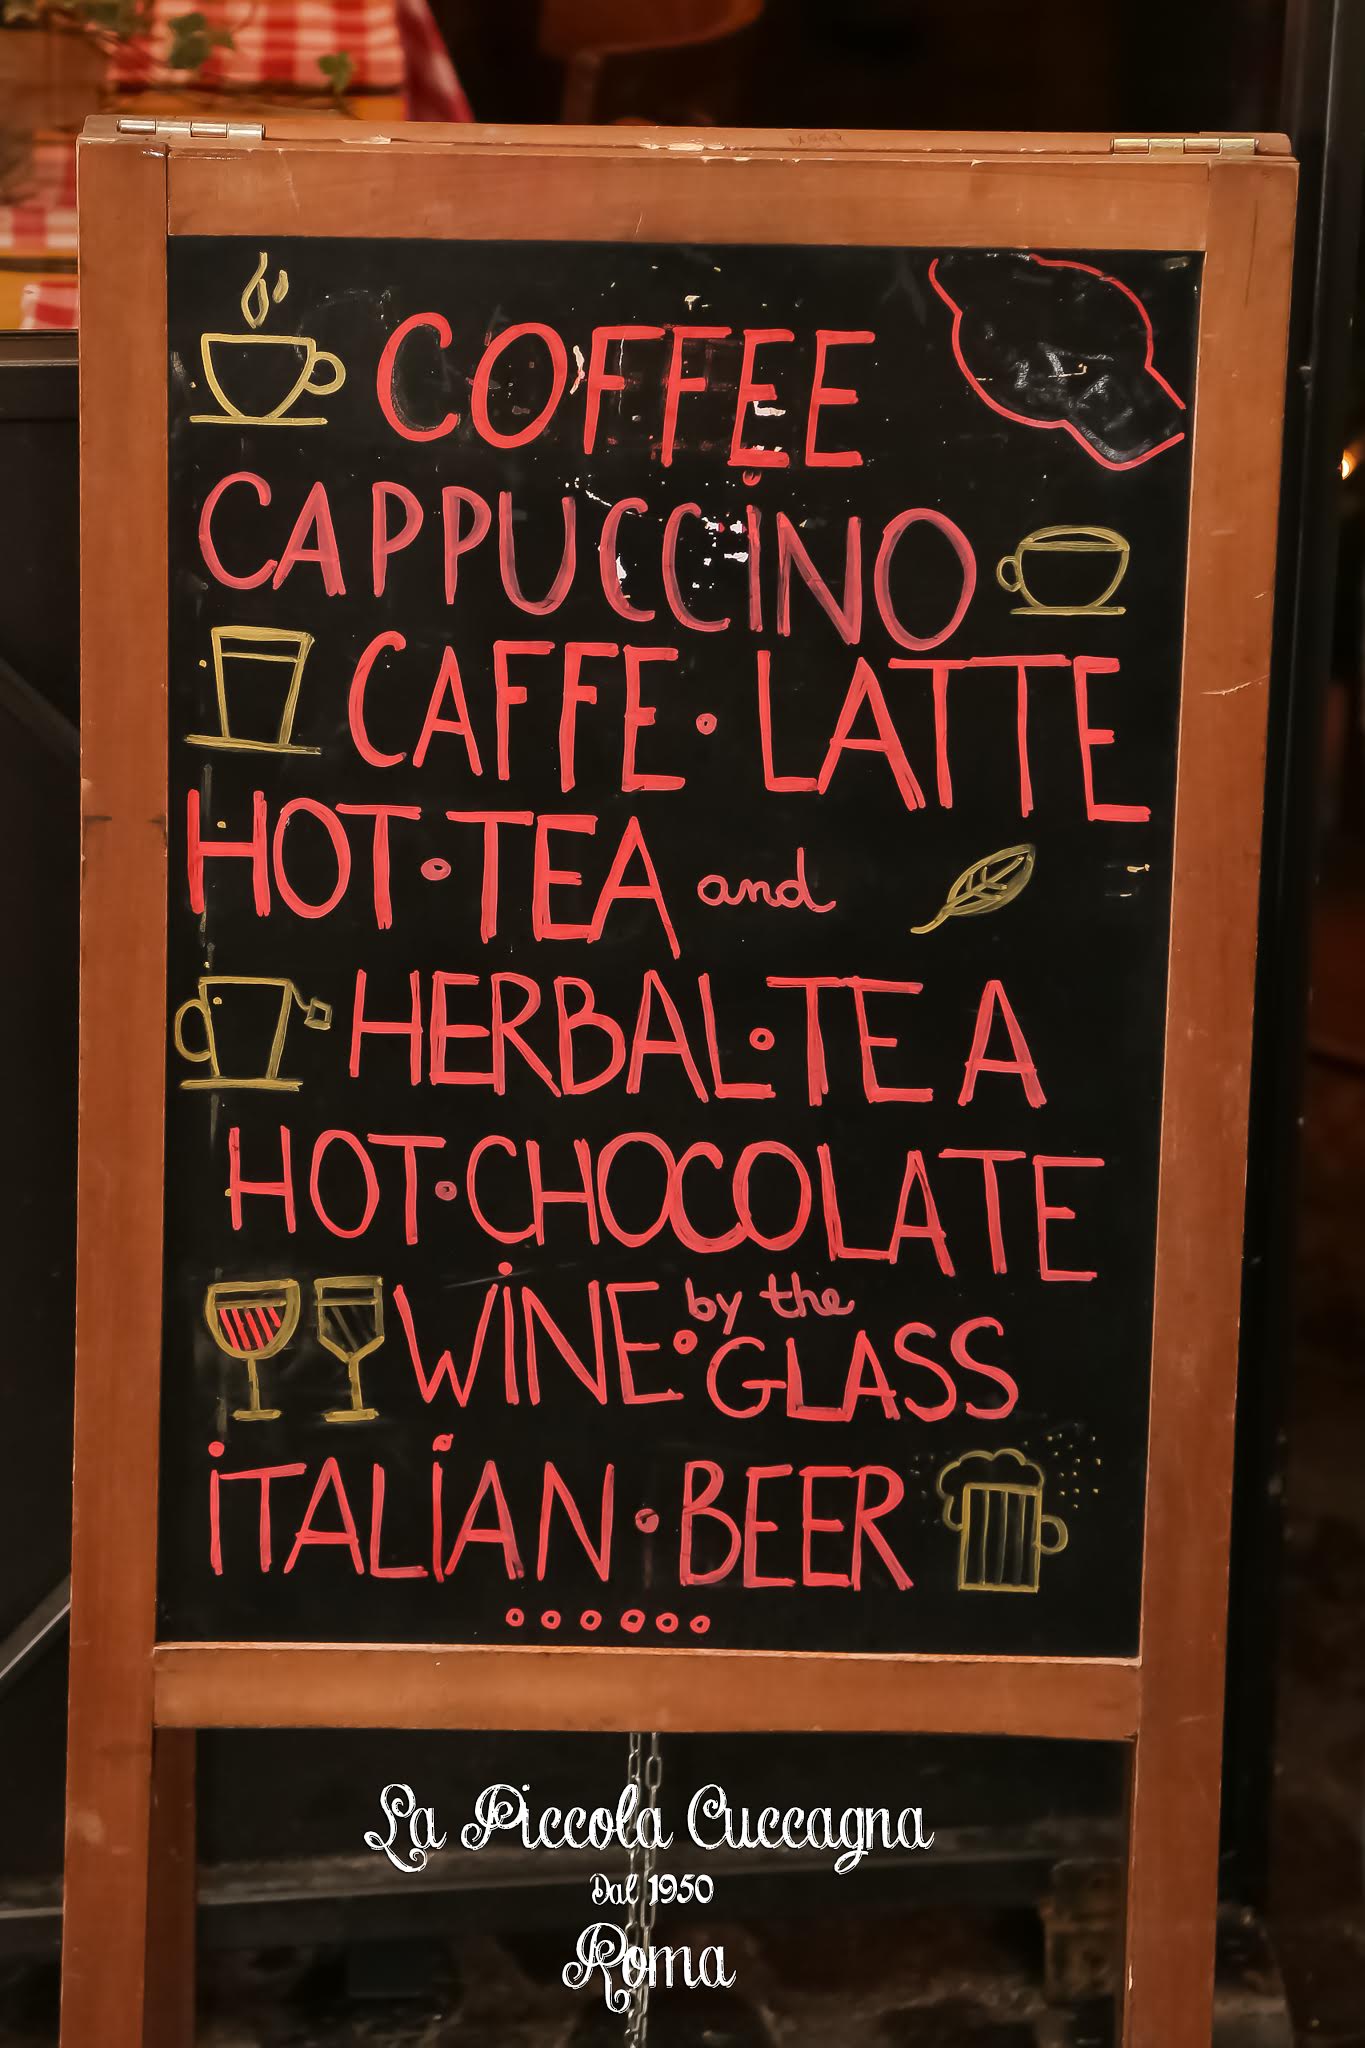 COFFEE
CAPPUCCINO
CAFFE • LATTE
HOT • TEA and
HERBAL • TEA
HOT • CHOCOLATE
WINE • by the GLASS
ITALIAN • BEER
La Piccola Cuccagna
Dal 1950
Roma